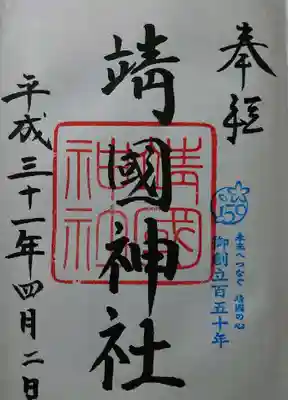 奉拝
靖國神社
靖國
神社
150
未来へつなぐ 靖國の心
御創立百五十年
平成三十一年四月二日